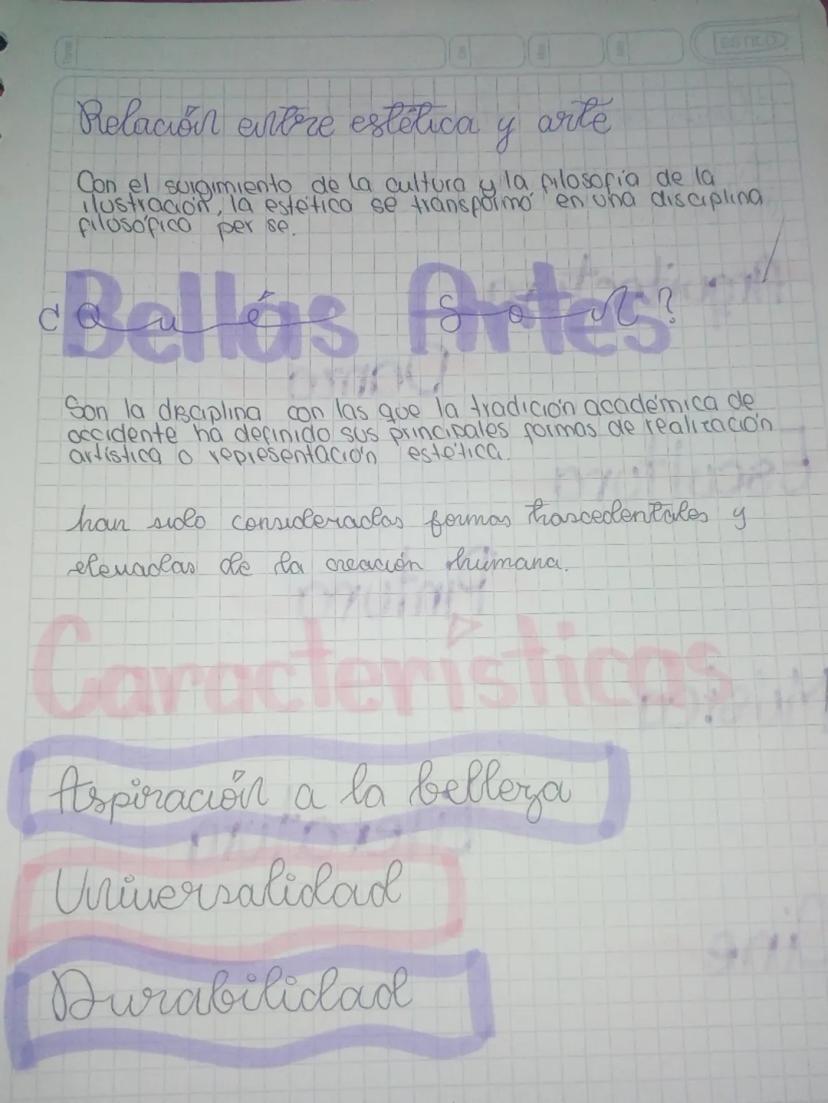 Relación entre estética y arte
Con el surgimiento de la cultura y la filosofía de la
ilustración, la estética se transformó en una disciplina
filosófica per se.
Bellas Artes
¿Qué son?
Son la disciplina con las que la tradición académica de
occidente ha definido sus principales formas de realización
artística o representación estética.
han sido consideradas formas trascedentales y
elevadas de la creación humana.
Características
Aspiración a la belleza
Universalidad
Durabilidad